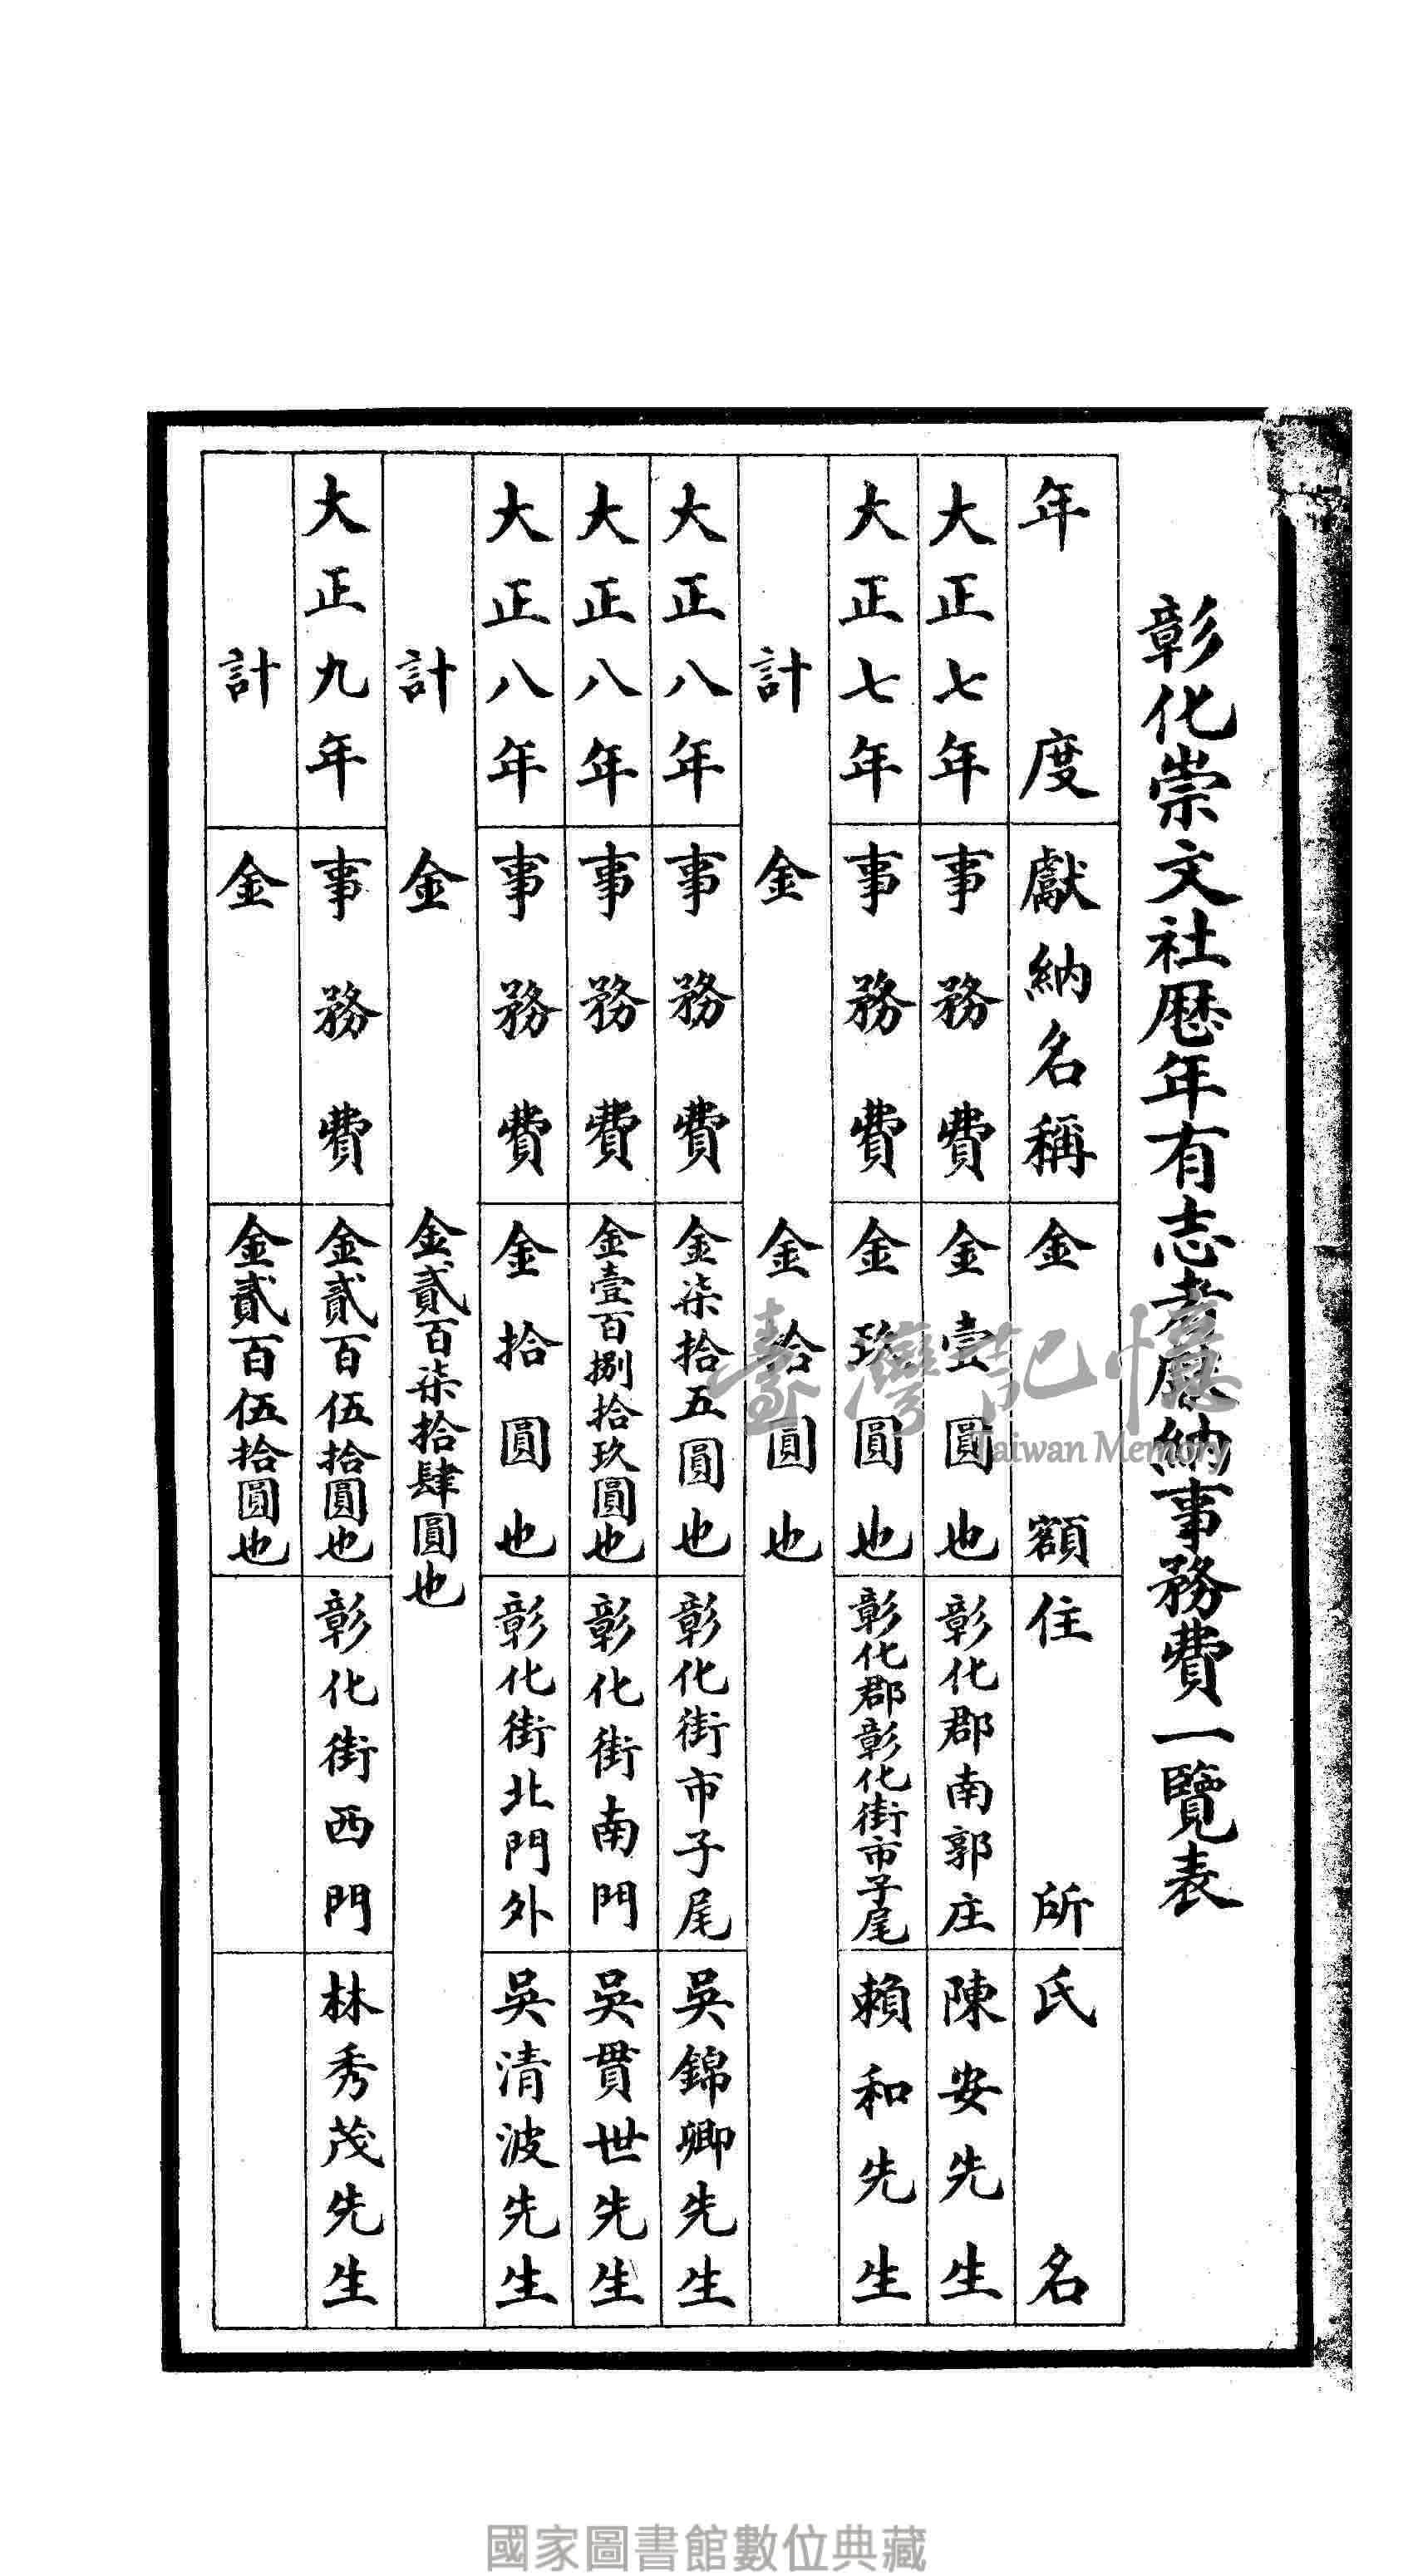 彰化崇文社歷年有志者獻納事務費一覽表
年度 獻納名稱 金額 住所 氏名
大正七年 事務費 金壹圓也 彰化郡南郭庄 陳安先生
大正七年 事務費 金玖圓也 彰化郡彰化街市子尾 賴和先生
計 金 金拾圓也
大正八年 事務費 金柒拾五圓也 彰化街市子尾 吳錦卿先生
大正八年 事務費 金壹百捌拾玖圓也 彰化街南門 吳貫世先生
大正八年 事務費 金拾圓也 彰化街北門外 吳清波先生
計 金 金貳百柒拾肆圓也
大正九年 事務費 金貳百伍拾圓也 彰化街西門 林秀茂先生
計 金 金貳百伍拾圓也
臺灣記憶
Taiwan Memory
國家圖書館數位典藏